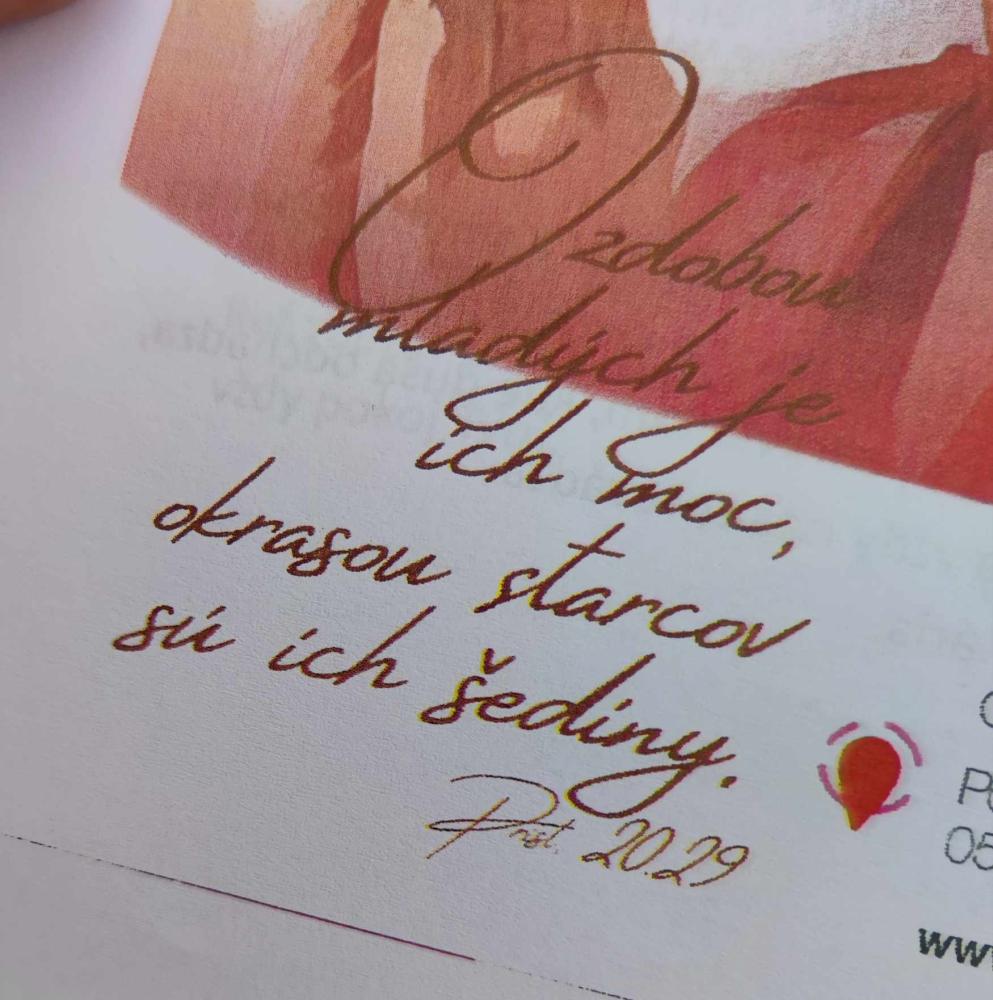 Ozdobou
mladých je
ich moc,
okrasou starcov
sú ich šediny.
Prísl. 20.29
05
www